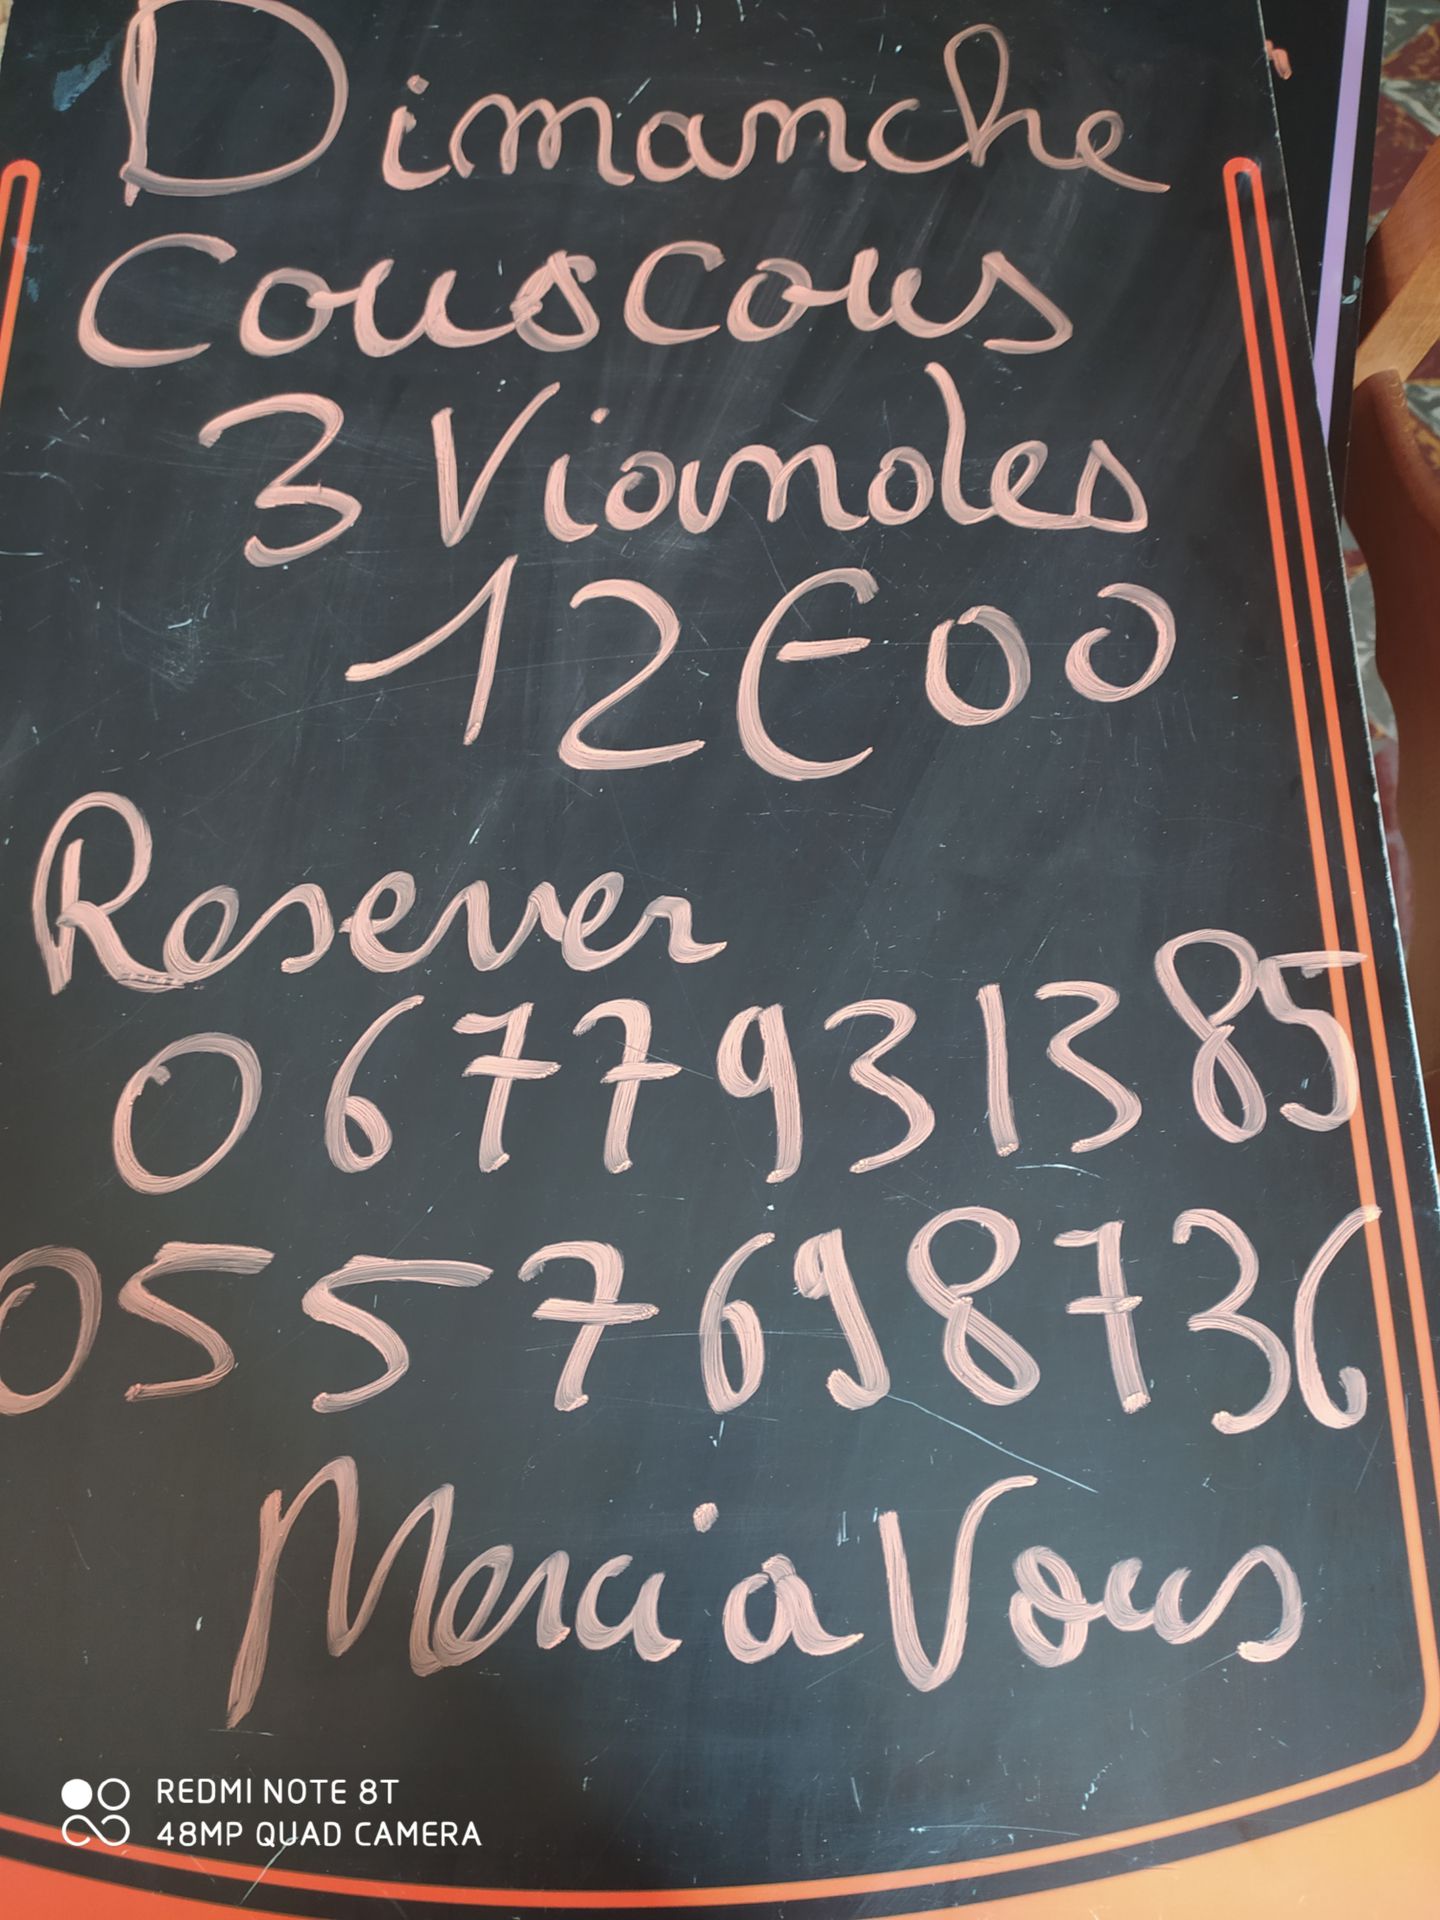 Dimanche
Couscous
3 Viandes
12€00
Reserver
0677931385
0557698736
Merci a Vous
REDMI NOTE 8T
48MP QUAD CAMERA